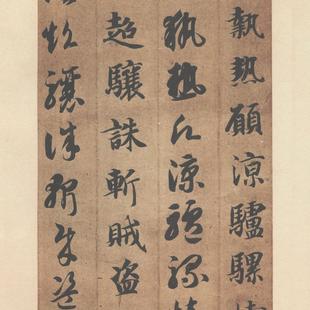 執熱願涼驢騾
執熱願涼驢騾
超驤誅斬賊盜
超驤誅斬賊盜